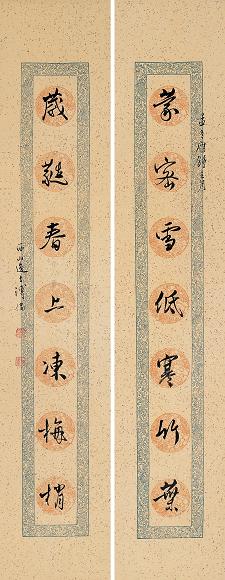 蒙密雪低寒竹葉
葳蕤春上凍梅梢
西山逸士溥儒